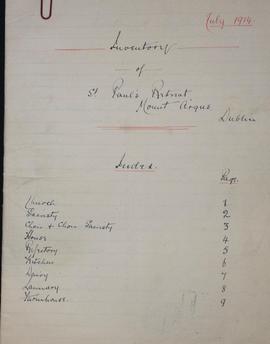 July 1914
Inventory
of
St Paul's Retreat
Mount Argus
Dublin
Index
Page
Church 1
Sacristy 2
Choir & Choir Sacristy 3
House 4
Refectory 5
Kitchen 6
Dairy 7
Laundry 8
Farmhouse 9